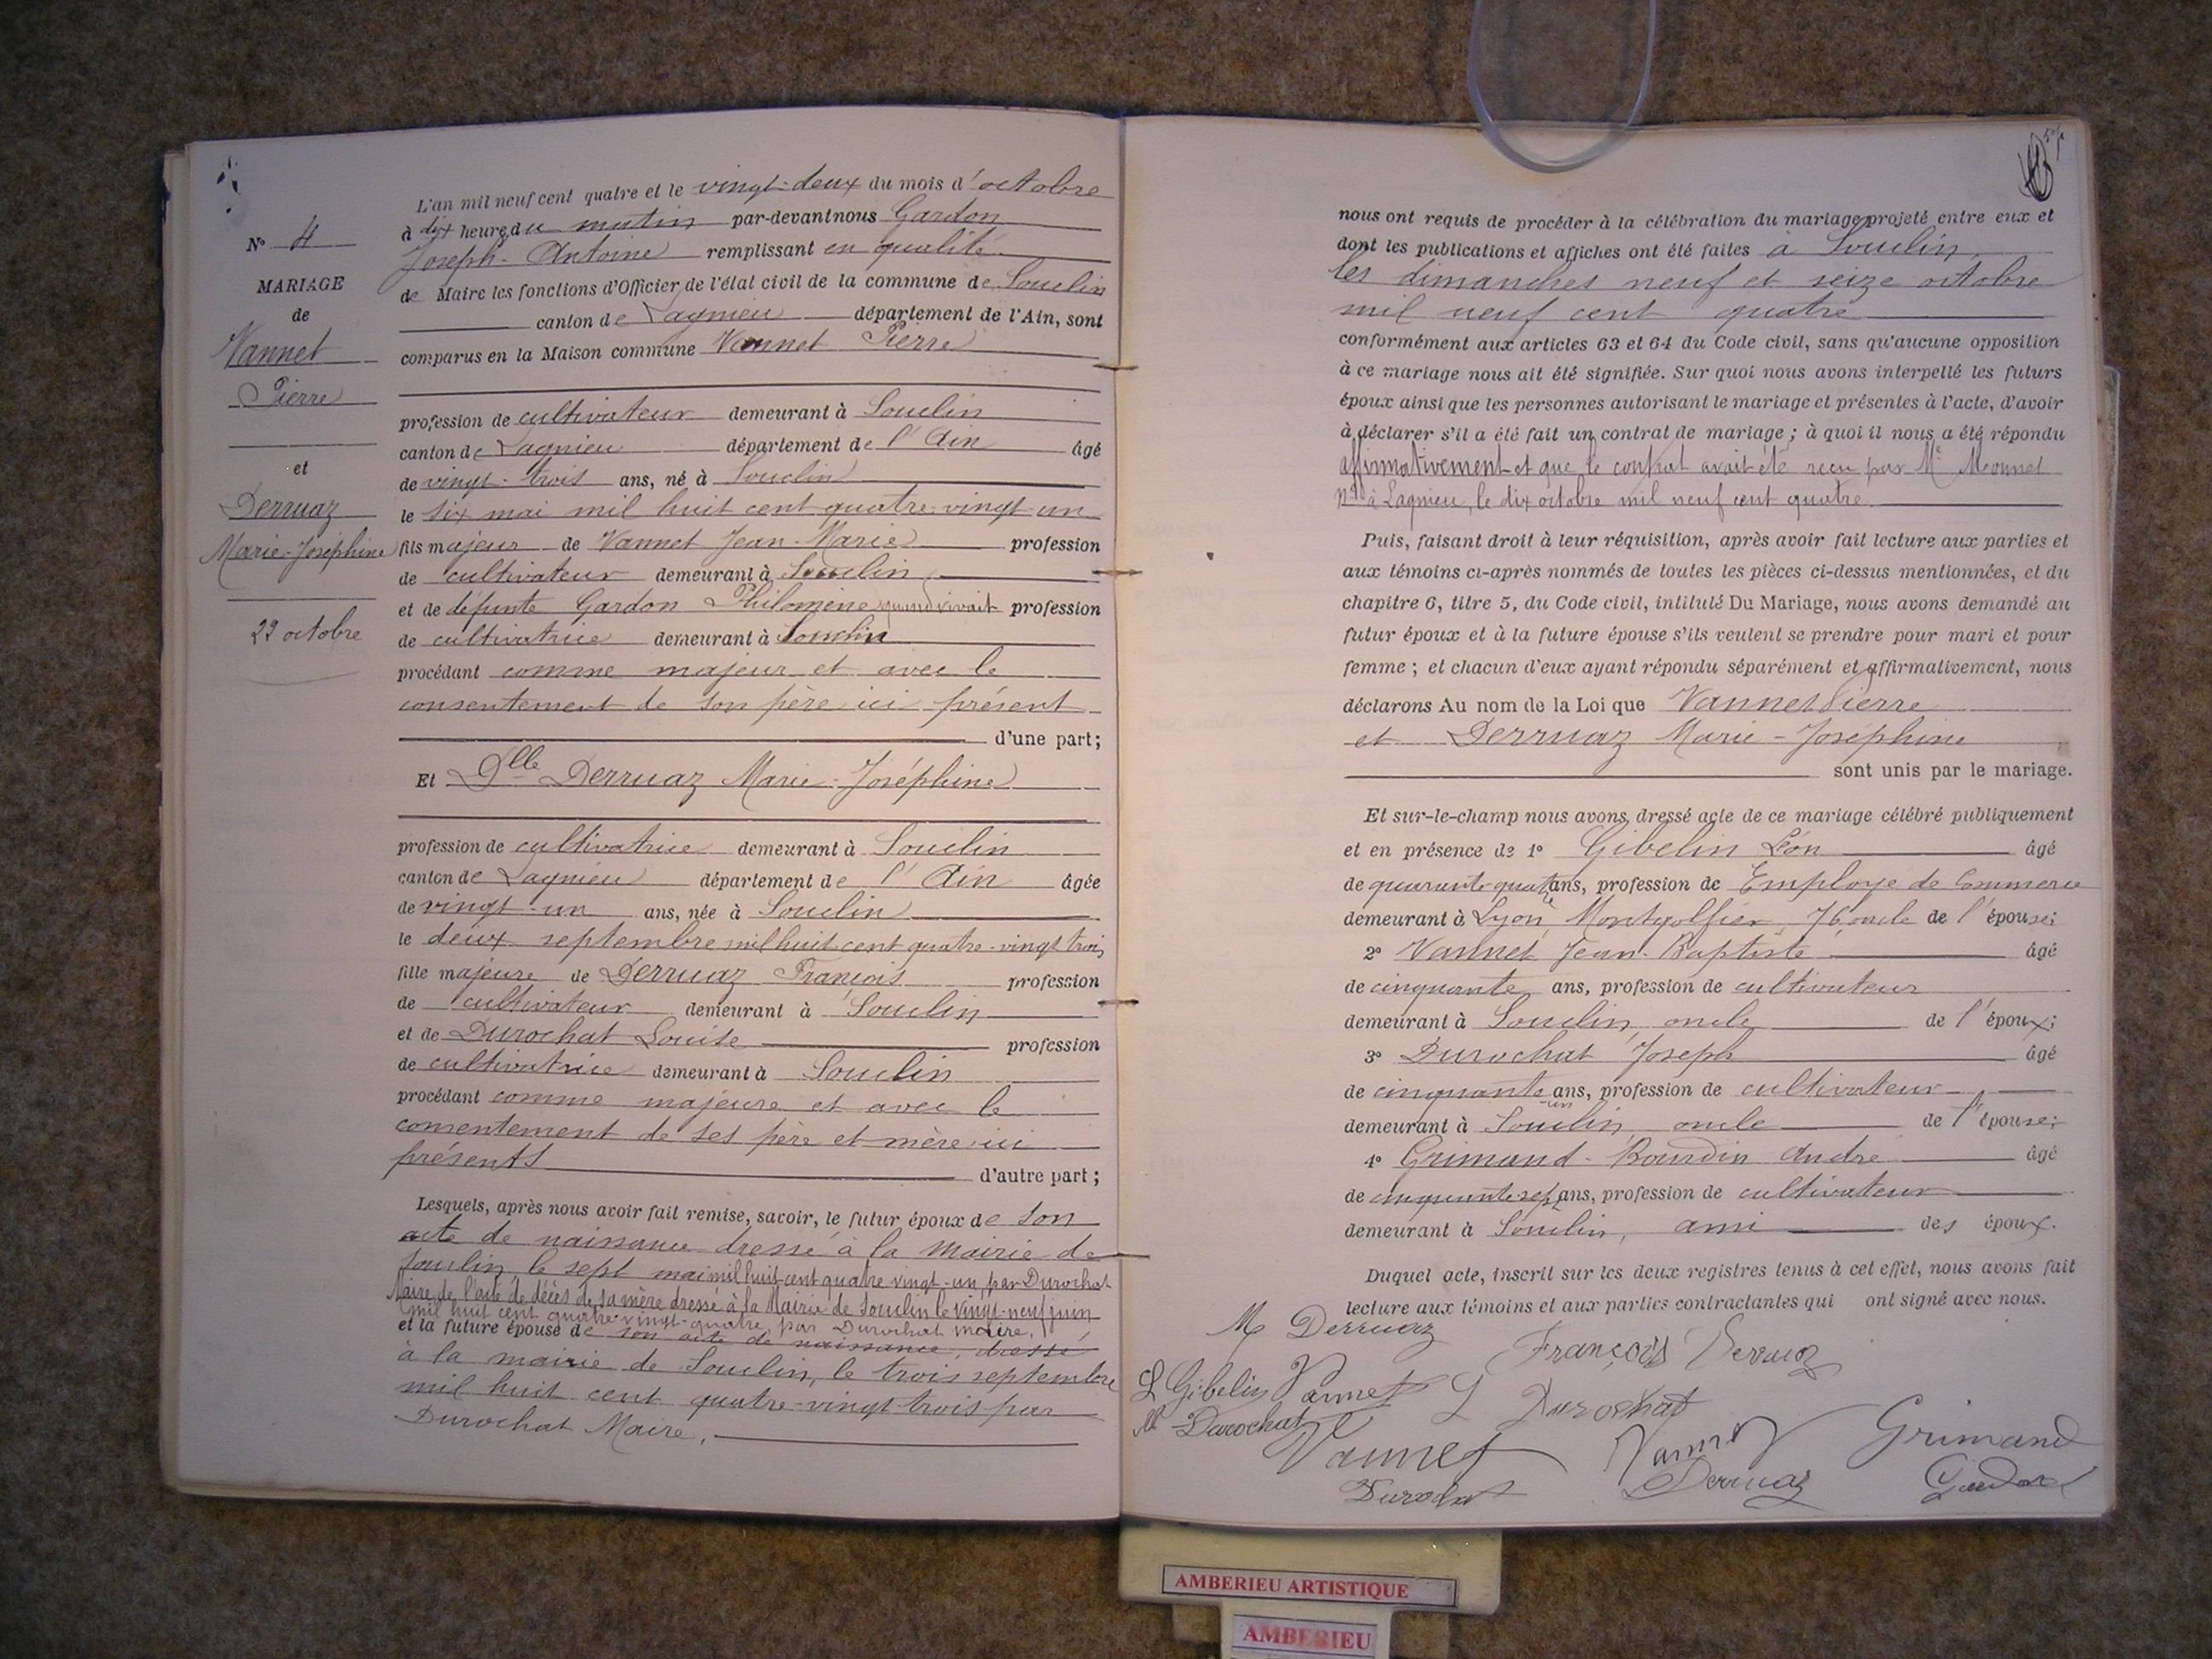 N° 4
MARIAGE
de
Vannet
Pierre
et
Derruaz
Marie-Joséphine
22 octobre
L'an mil neuf cent quatre et le vingt-deux du mois d'octobre
à dix heures du matin par-devant nous Gardon
Joseph-Antoine remplissant en qualité
de Maire les fonctions d'Officier de l'état civil de la commune de Souclin
canton de Lagnieu département de l'Ain, sont
comparus en la Maison commune Vannet Pierre
profession de cultivateur demeurant à Souclin
canton de Lagnieu département de l'Ain âgé
de vingt-trois ans, né à Souclin
le six mai mil huit cent quatre-vingt-un
fils majeur de Vannet Jean-Marie profession
de cultivateur demeurant à Souclin
et de défunte Gardon Philomène quand vivait profession
de cultivatrice demeurant à Souclin
procédant comme majeur et avec le
consentement de son père ici présent
d'une part;
Et Dlle Derruaz Marie-Joséphine
profession de cultivatrice demeurant à Souclin
canton de Lagnieu département de l'Ain âgée
de vingt-un ans, née à Souclin
le deux septembre mil huit cent quatre-vingt trois
fille majeure de Derruaz François profession
de cultivateur demeurant à Souclin
et de Durochat Louise profession
de cultivatrice demeurant à Souclin
procédant comme majeure et avec le
consentement de ses père et mère ici
présents d'autre part;
Lesquels, après nous avoir fait remise, savoir, le futur époux de son
acte de naissance dressé à la mairie de
Souclin le sept mai mil huit cent quatre vingt-un, par Durochat
Maire, de l'acte de décès de sa mère dressé à la Mairie de Souclin le vingt-neuf juin
mil huit cent quatre-vingt-quatre, par Durochat maire,
et la future épouse de son acte de naissance, dressé
à la mairie de Souclin, le trois septembre
mil huit cent quatre-vingt-trois par
Durochat Maire.
nous ont requis de procéder à la célébration du mariage projeté entre eux et
dont les publications et affiches ont été faites à Souclin,
les dimanches neuf et seize octobre
mil neuf cent quatre
conformément aux articles 63 et 64 du Code civil, sans qu'aucune opposition
à ce mariage nous ait été signifiée. Sur quoi nous avons interpellé les futurs
époux ainsi que les personnes autorisant le mariage et présentes à l'acte, d'avoir
à déclarer s'il a été fait un contrat de mariage; à quoi il nous a été répondu
affirmativement et que le contrat avait été reçu par Me Monnet
Nre à Lagnieu, le dix octobre mil neuf cent quatre.
Puis, faisant droit à leur réquisition, après avoir fait lecture aux parties et
aux témoins ci-après nommés de toutes les pièces ci-dessus mentionnées, et du
chapitre 6, titre 5, du Code civil, intitulé Du Mariage, nous avons demandé au
futur époux et à la future épouse s'ils veulent se prendre pour mari et pour
femme; et chacun d'eux ayant répondu séparément et affirmativement, nous
déclarons Au nom de la Loi que Vannet Pierre
et Derruaz Marie-Joséphine
sont unis par le mariage.
Et sur-le-champ nous avons dressé acte de ce mariage célébré publiquement
et en présence de 1° Gibelin Léon âgé
de quarante quatre ans, profession de Employé de Commerce
demeurant à Lyon, Montgolfier, 76, oncle de l'épouse;
2° Vannet Jean-Baptiste âgé
de cinquante ans, profession de cultivateur
demeurant à Souclin, oncle de l'époux;
3° Durochat Joseph âgé
de cinquante-un ans, profession de cultivateur
demeurant à Souclin, oncle de l'épouse;
4° Grimand-Bourdin André âgé
de cinquante sept ans, profession de cultivateur
demeurant à Souclin, ami des époux.
Duquel acte, inscrit sur les deux registres tenus à cet effet, nous avons fait
lecture aux témoins et aux parties contractantes qui ont signé avec nous.
M Derruaz François Derruaz
L Gibelin Vannet L Durochat
M Durochat Vannet Vannet Grimand
Durochat Derruaz Gardon
AMBERIEU ARTISTIQUE
AMBERIEU